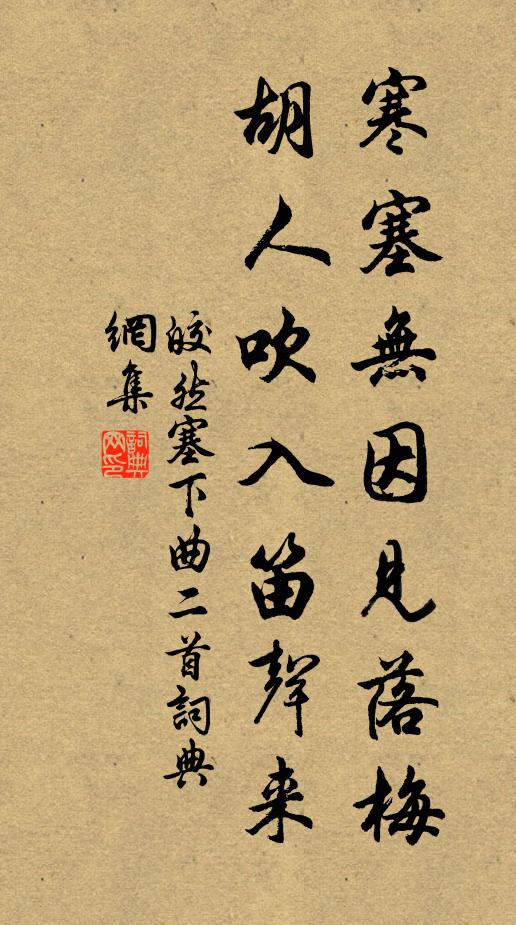 寒塞無因見落梅
胡人吹入笛聲来
皎然塞下曲二首詞典
網集
詞典网印